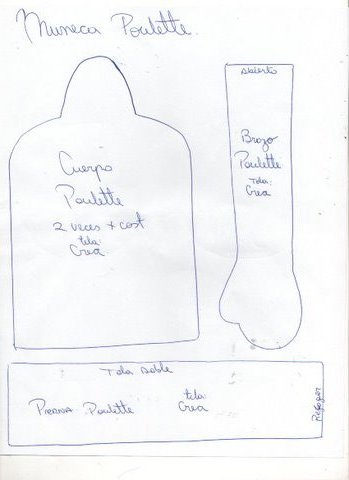 Muneca Poulette.
Cuerpo
Poulette
2 veces + cost
tela:
Crea
Abierto
Brazo
Poulette
Tela:
Crea
Tela doble
Pierna Poulette
tela:
Crea